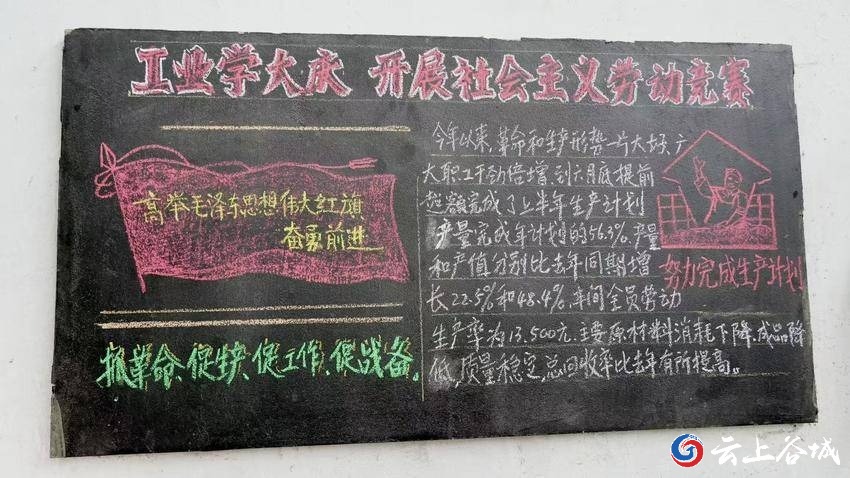 工业学大庆 开展社会主义劳动竞赛
高举毛泽东思想伟大红旗
奋勇前进
抓革命、促生产、促工作、促战备。
今年以来,革命和生产形势一片大好、广
大职工干劲倍增到六月底提前
超额完成了上半年生产计划
产量完成年计划的56.3%.产量
和产值分别比去年同期增
长22.5%和48.4%.车间全员劳动
生产率为13.500元.主要原材料消耗下降.成品降
低,质量稳定,总回收率比去年有所提高。
努力完成生产计划
云上谷城